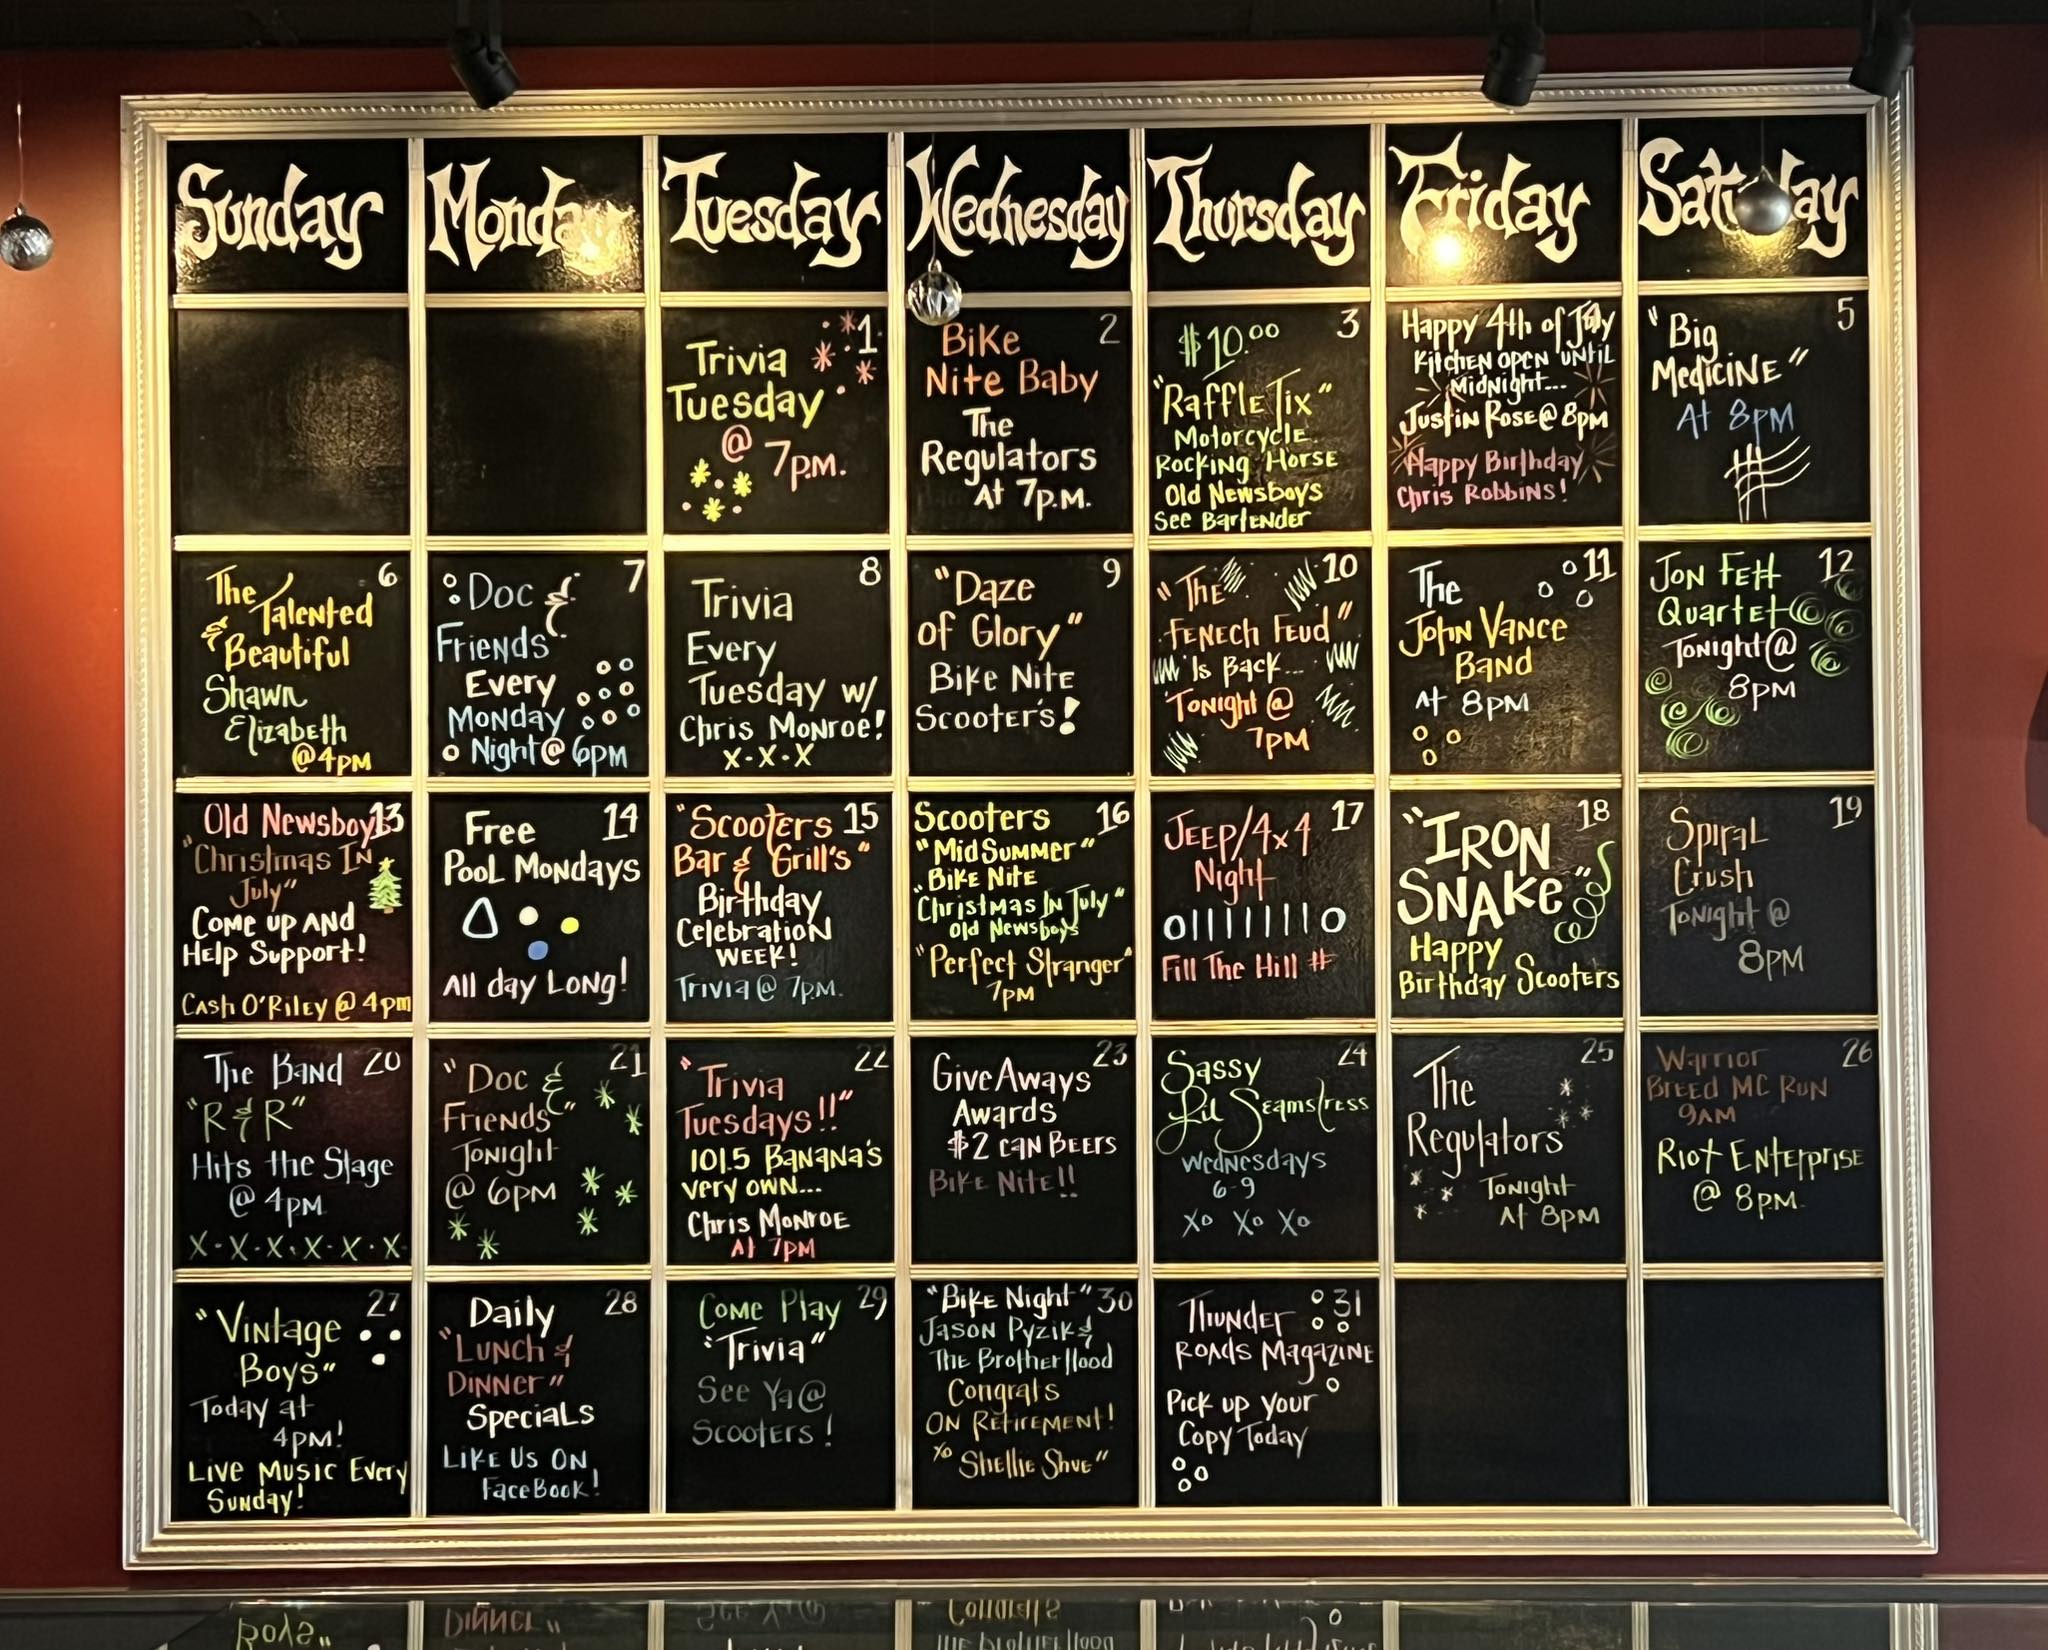 Sunday Monday Tuesday Wednesday Thursday Friday Saturday
1
Trivia
Tuesday
@ 7p.m.
2
Bike
Nite Baby
The
Regulators
At 7p.m.
3
$10.00
"Raffle Tix"
Motorcycle
Rocking Horse
Old Newsboys
See Bartender
4
Happy 4th of July
Kitchen open until
Midnight...
Justin Rose @ 8pm
Happy Birthday
Chris Robbins!
5
"Big
Medicine"
At 8pm
6
The
Talented
& Beautiful
Shawn
Elizabeth
@ 4pm
7
Doc &
Friends
Every
Monday
Night @ 6pm
8
Trivia
Every
Tuesday w/
Chris Monroe!
X·X·X
9
"Daze
of Glory"
Bike Nite
Scooter's!
10
"The
Fenech Feud"
Is Back...
Tonight @
7pm
11
The
John Vance
Band
At 8pm
12
Jon Fett
Quartet
Tonight @
8pm
13
Old Newsboys
"Christmas In
July"
Come up and
Help Support!
Cash O'Riley @ 4pm
14
Free
Pool Mondays
All day Long!
15
"Scooters
Bar & Grill's"
Birthday
Celebration
Week!
Trivia @ 7p.m.
16
Scooters
"Mid Summer"
"Bike Nite
Christmas In July"
Old Newsboys
"Perfect Stranger"
7pm
17
Jeep/4x4
Night
O|||||||O
Fill The Hill #
18
"Iron
Snake"
Happy
Birthday Scooters
19
Spiral
Crush
Tonight @
8pm
20
The Band
"R & R"
Hits the Stage
@ 4pm
X·X·X·X·X·X
21
"Doc &
Friends"
Tonight
@ 6pm
22
"Trivia
Tuesdays!!"
101.5 Banana's
very own...
Chris Monroe
At 7pm
23
Give Aways
Awards
$2 can Beers
Bike Nite!!
24
Sassy
Lil Seamstress
Wednesdays
6-9
Xo Xo Xo
25
The
Regulators
Tonight
At 8pm
26
Warrior
Breed MC Run
9am
Riot Enterprise
@ 8p.m.
27
"Vintage
Boys"
Today at
4pm!
Live Music Every
Sunday!
28
Daily
"Lunch &
Dinner"
Specials
Like Us On
FaceBook!
29
Come Play
"Trivia"
See Ya @
Scooters!
30
"Bike Night"
Jason Pyzik &
The Brotherhood
Congrats
on Retirement!
xo Shellie Shue"
31
Thunder
Roads Magazine
Pick up your
Copy Today